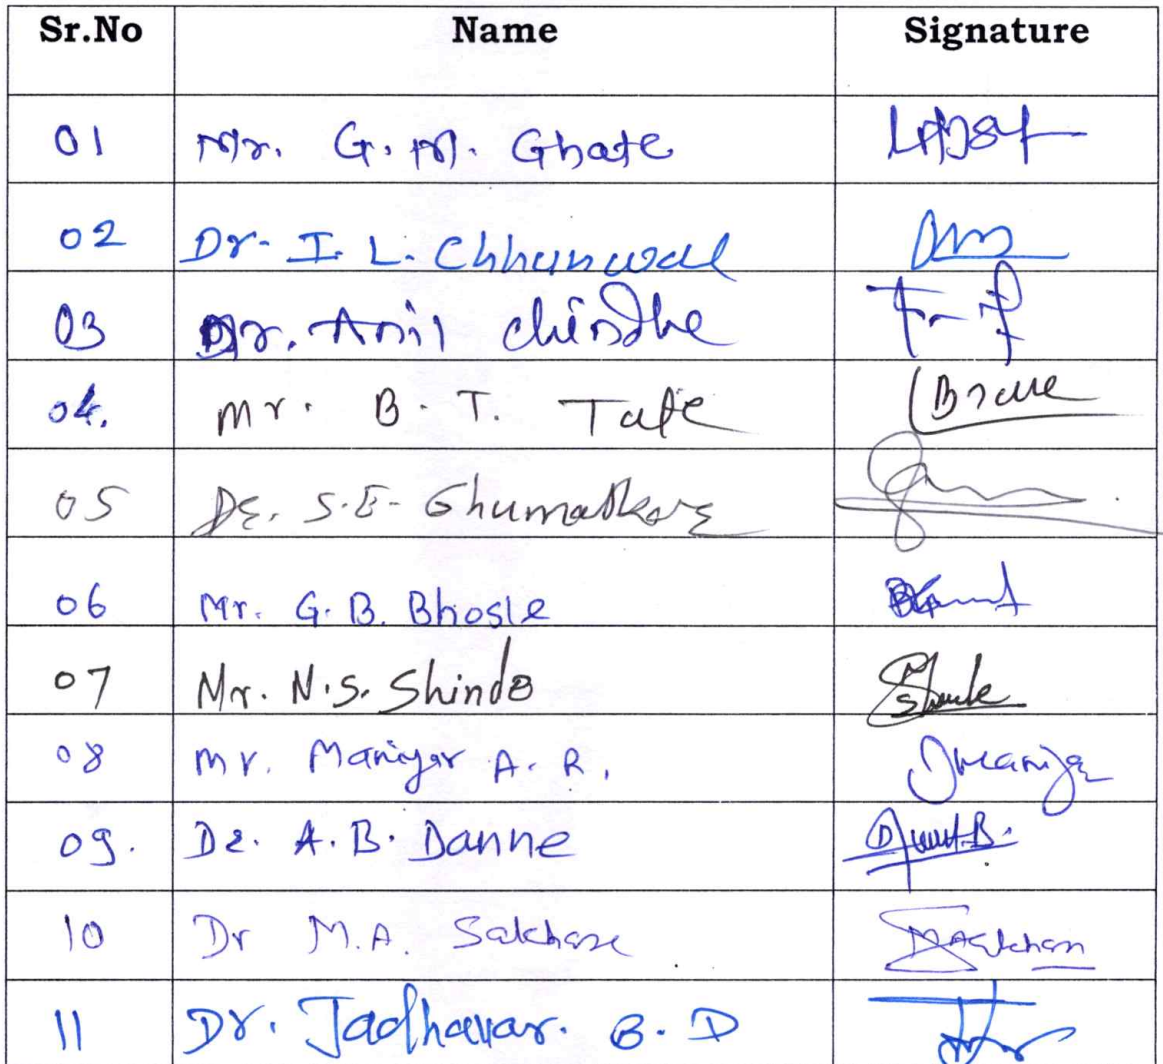 Sr.No Name Signature
01 Mr. G. M. Ghate
02 Dr. I. L. Chhunwal
03 Dr. Anil Chirdhe
04. Mr. B. T. Tate
05 Dr. S.E. Ghumatkar
06 Mr. G. B. Bhosle
07 Mr. N.S. Shinde
08 Mr. Maniyar A. R.
09. Dr. A.B. Danne
10 Dr M.A. Sakhare
11 Dr. Jadhavar. B. D